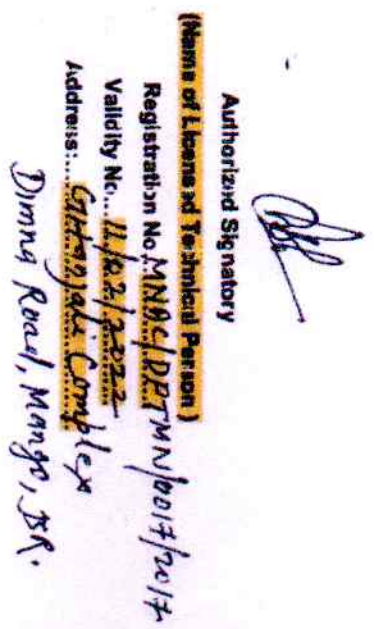 Authorized Signatory
(Name of Licensed Technical Person)
Registration No. MNAC/DRTMN/0017/2017
Validity No.... 11/02/2022
Address:.... Gitanjali Complex
Dimna Road, Mango, JSR.